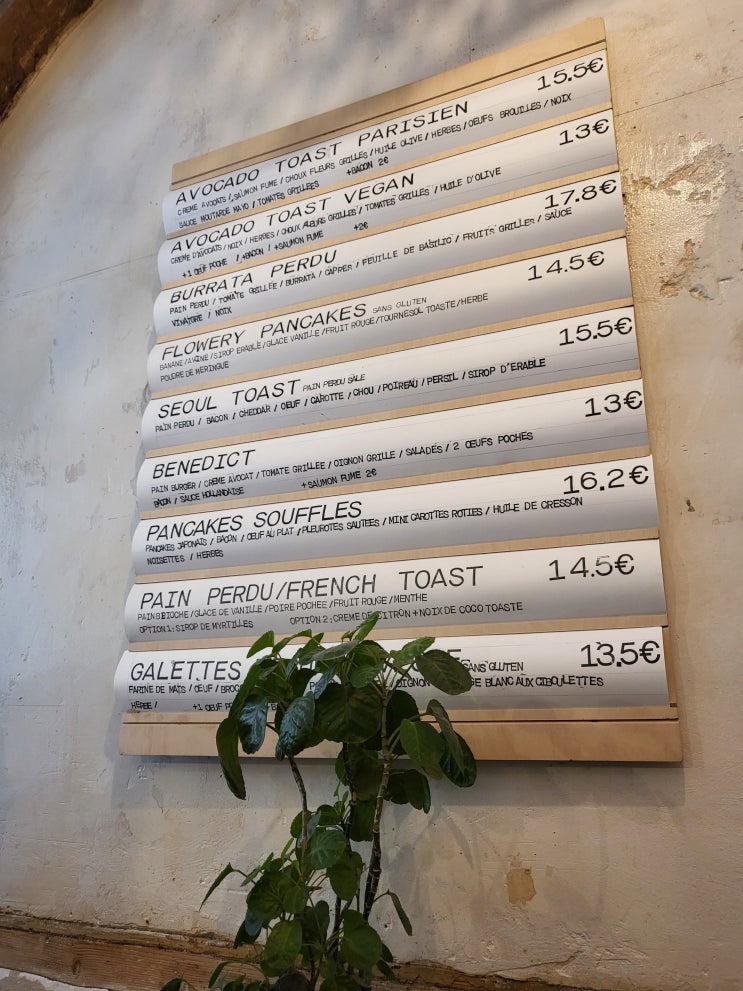 AVOCADO TOAST PARISIEN 15.5€
CREME AVOCATS / SAUMON FUME / CHOUX FLEURS GRILLES / HUILE OLIVE / HERBES / OEUFS BROUILLES / NOIX
SAUCE MOUTARDE MAYO / TOMATES GRILLEES +BACON 2€
AVOCADO TOAST VEGAN 13€
CREME D'AVOCATS / NOIX / HERBES / CHOUX FLEURS GRILLES / TOMATES GRILLES / HUILE D'OLIVE
+1 OEUF POCHE / +BACON / +SAUMON FUME +2€
BURRATA PERDU 17.8€
PAIN PERDU / TOMATE GRILLEE / BURRATA / CAPRES / FEUILLE DE BASILIC / FRUITS GRILLES / SAUCE
VINAIGRE / NOIX
FLOWERY PANCAKES SANS GLUTEN 14.5€
BANANE / AVOINE / SIROP ERABLE / GLACE VANILLE / FRUIT ROUGE / TOURNESOL TOASTE / HERBE
POUDRE DE MERINGUE
SEOUL TOAST PAIN PERDU SALE 15.5€
PAIN PERDU / BACON / CHEDDAR / OEUF / CAROTTE / CHOU / POIREAU / PERSIL / SIROP D'ERABLE
BENEDICT 13€
PAIN BURGER / CREME AVOCAT / TOMATE GRILLEE / OIGNON GRILLE / SALADES / 2 OEUFS POCHES
BACON / SAUCE HOLLANDAISE +SAUMON FUME 2€
PANCAKES SOUFFLES 16.2€
PANCAKES JAPONAIS / BACON / OEUF AU PLAT / PLEUROTES SAUTEES / MINI CAROTTES ROTIES / HUILE DE CRESSON
NOISETTES / HERBES
PAIN PERDU/FRENCH TOAST 14.5€
PAIN BRIOCHE / GLACE DE VANILLE / POIRE POCHEE / FRUIT ROUGE / MENTHE
OPTION 1: SIROP DE MYRTILLES OPTION 2: CREME DE CITRON + NOIX DE COCO TOASTE
GALETTES SANS GLUTEN 13.5€
FARINE DE MAIS / OEUF / OIGNON BLANC AUX CIBOULETTES
HERBE / +1 OEUF